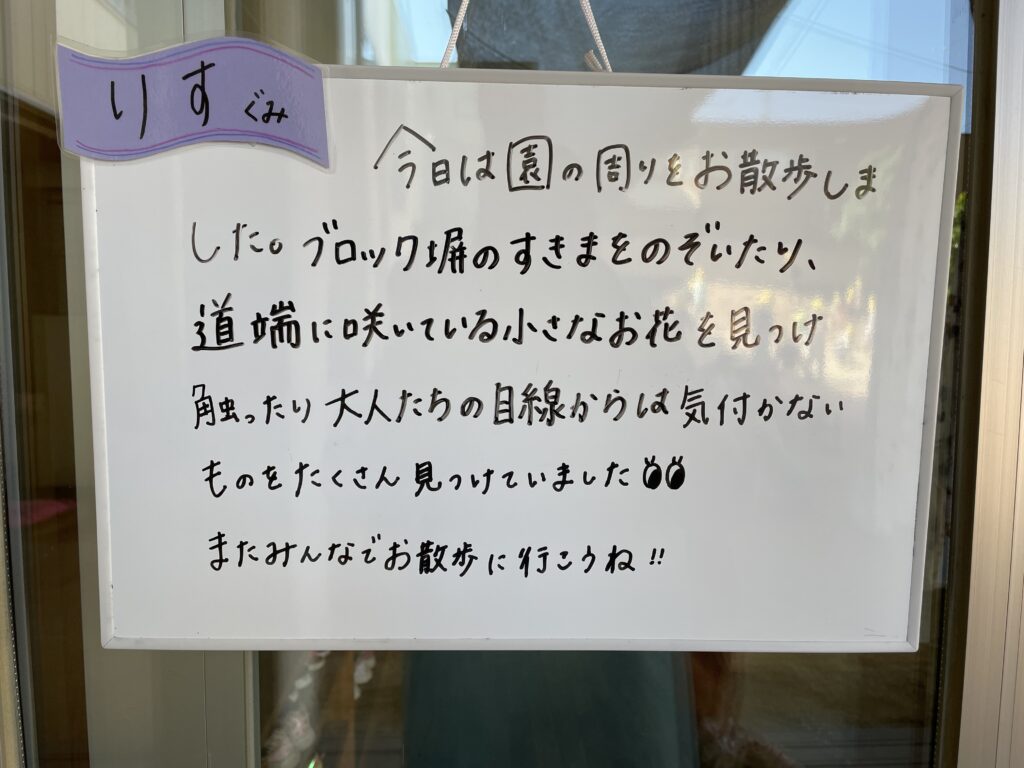 りすぐみ
今日は園の周りをお散歩しま
した。ブロック塀のすきまをのぞいたり、
道端に咲いている小さなお花を見つけ
触ったり大人たちの目線からは気付かない
ものをたくさん見つけていました👀
またみんなでお散歩に行こうね!!